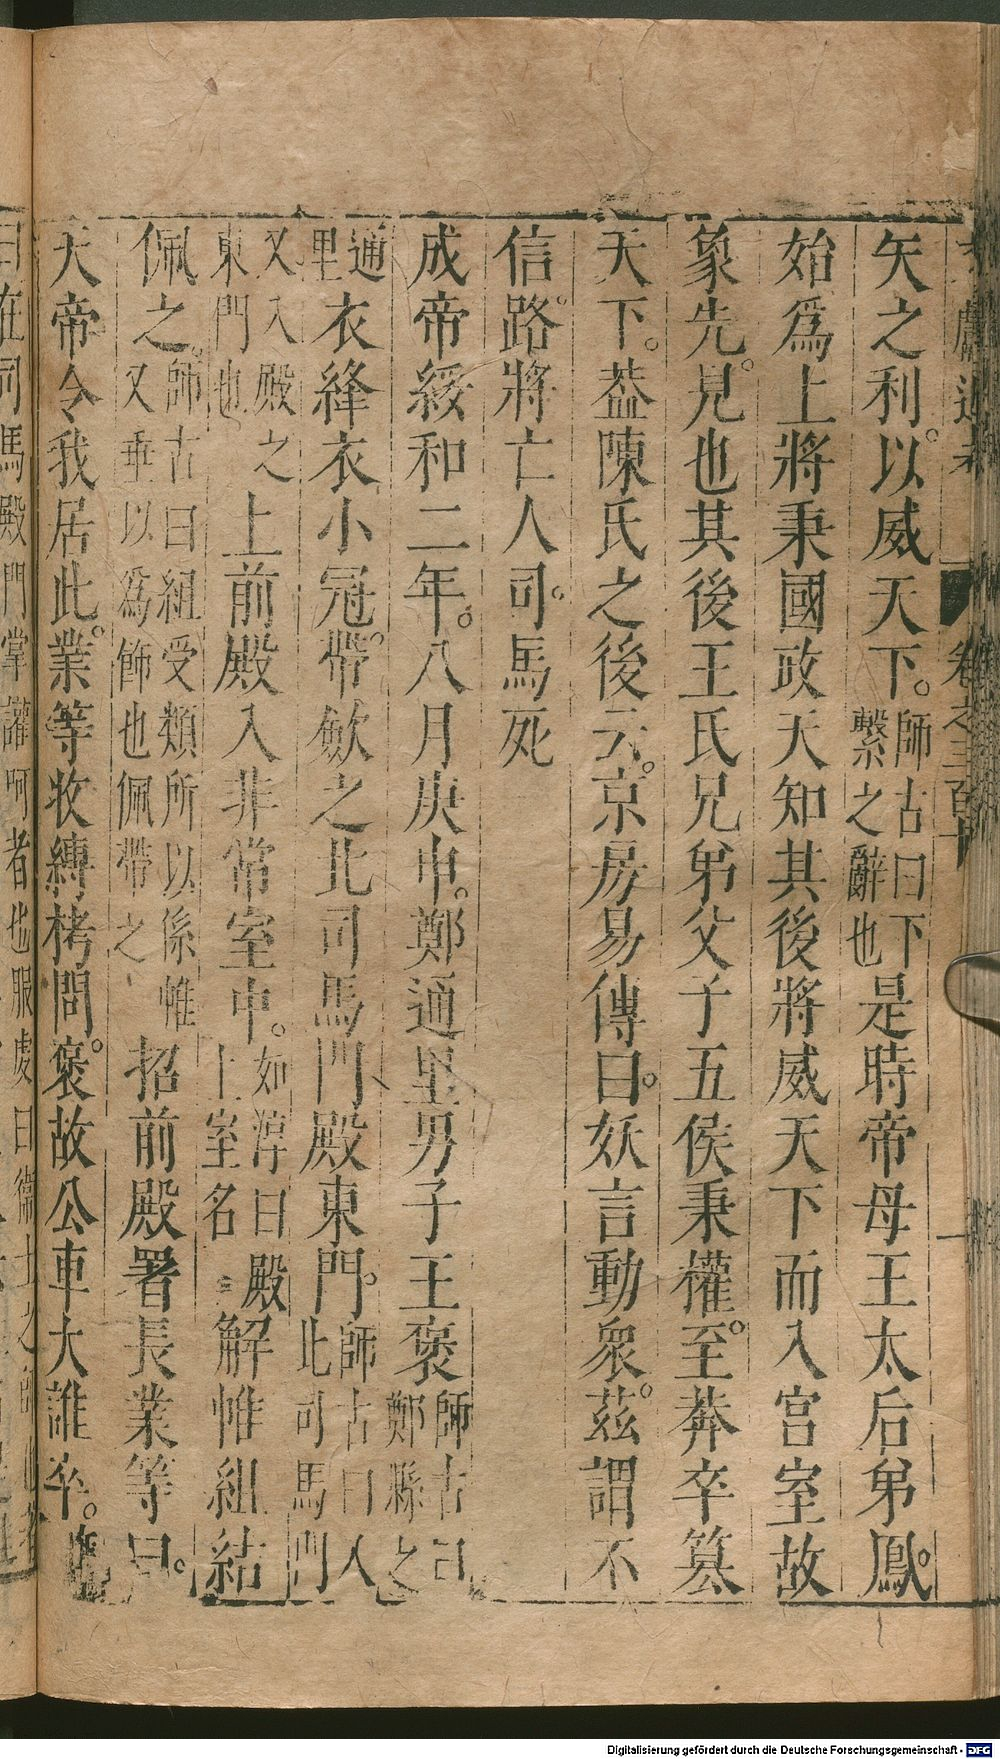 文獻通考 卷之三百十 一
矢之利。以威天下。師古曰下繫之辭也是時帝母王太后弟鳳。
始爲上將秉國政天知其後將威天下而入宮室故
象先。見也其後王氏兄弟父子五侯秉權。至莽卒篡
天下。葢陳氏之後云。京房易傳曰。妖言動衆。茲謂不
信路。將亡人司。馬死
成帝綏和二年。八月庚申。鄭通里男子王襃師古曰鄭縣之
通里衣絳衣小冠。帶劒之北司馬門殿東門。師古曰人北司馬門
又入殿之東門也上前殿入非常室中。如淳曰殿上室名解帷組結
佩之。師古曰組受類所以係帷又垂以爲飾也佩帶之招前殿署長業等曰。
天帝令我居此。業等收縛栲問。襃故公車大誰卒。
曰在司馬殿門掌讙呵者也服虔曰衞士之師
Digitalisierung gefördert durch die Deutsche Forschungsgemeinschaft - DFG